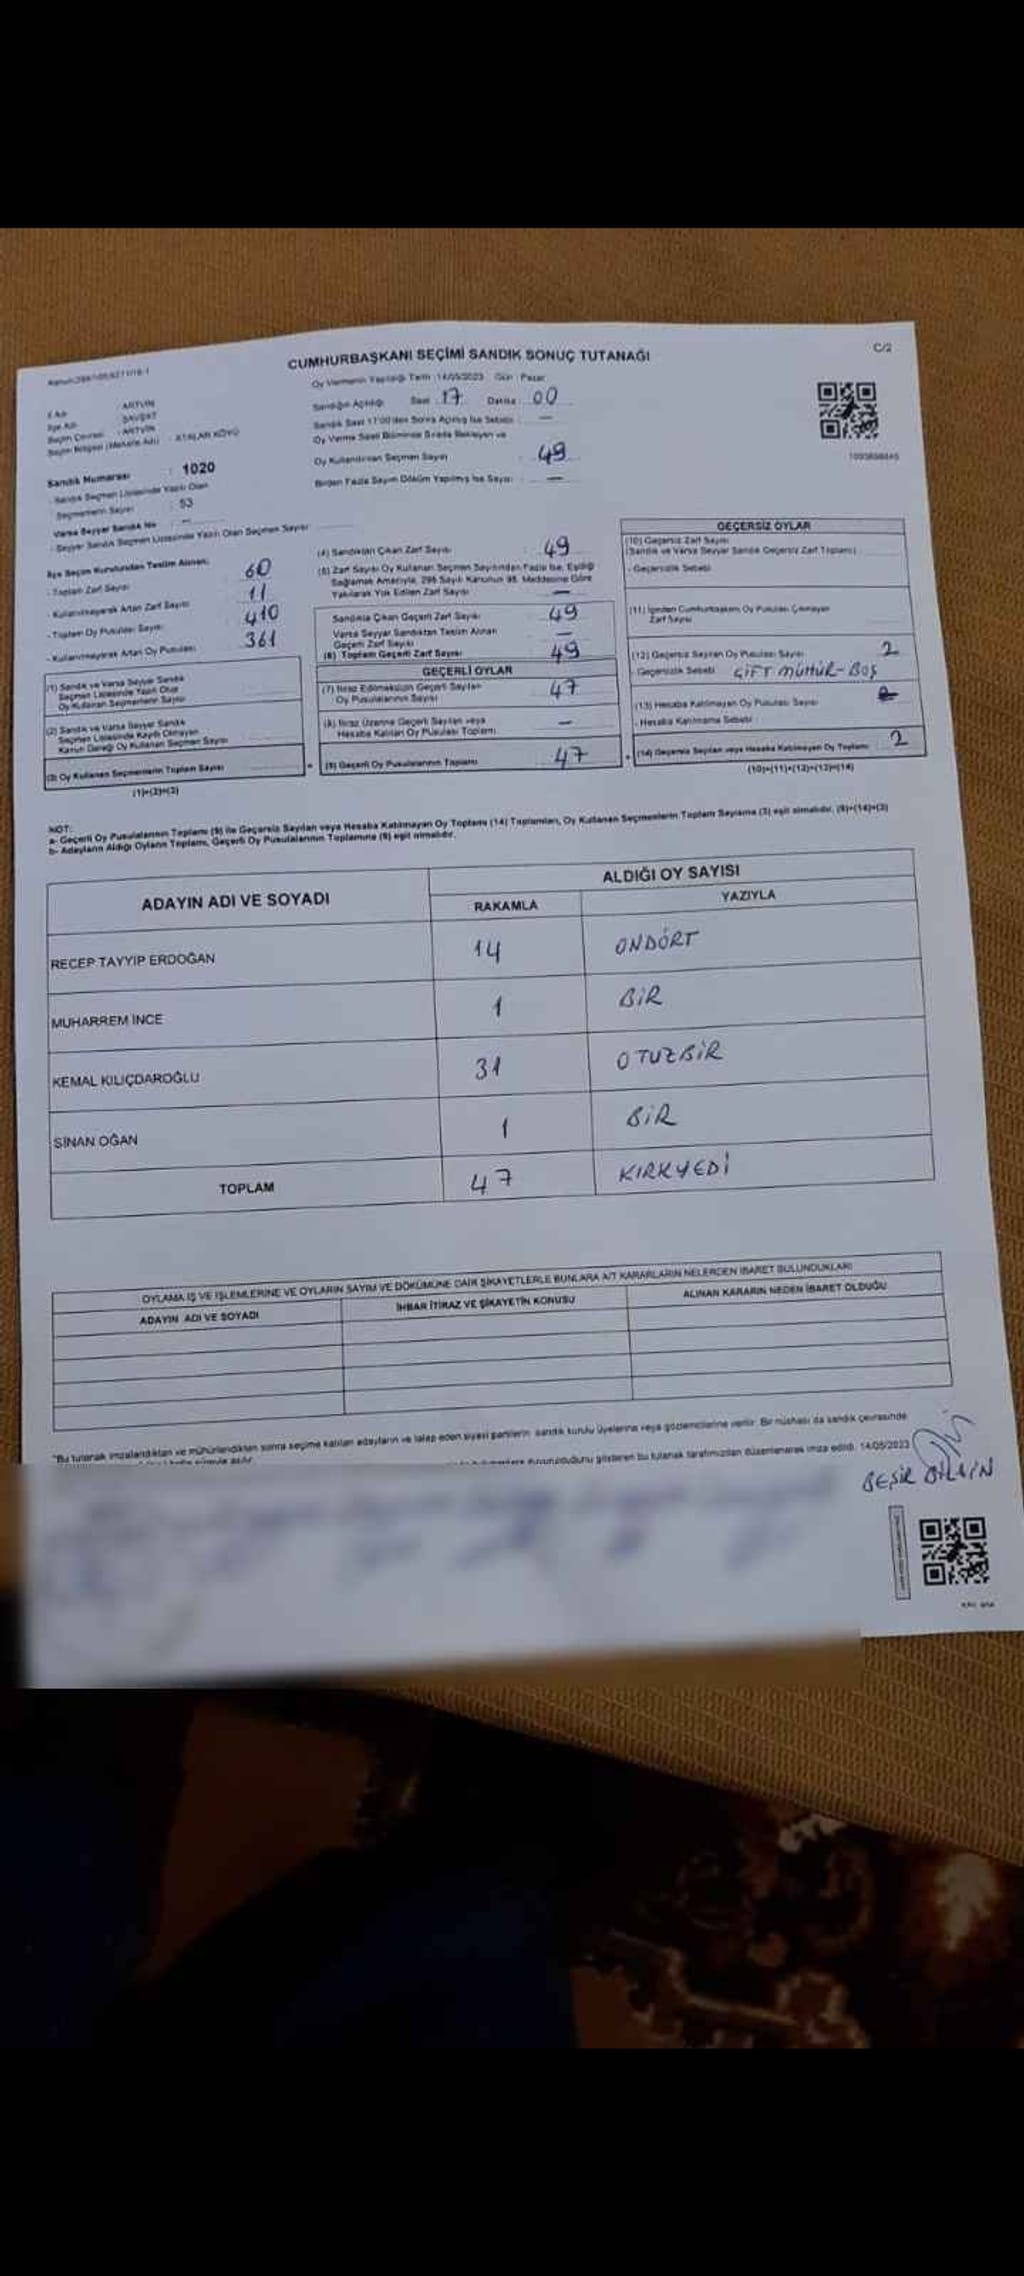 CUMHURBAŞKANI SEÇİMİ SANDIK SONUÇ TUTANAĞI
C/2
Oy Vermenin Yapıldığı Tarih : 14/05/2023 Gün : Pazar
İl Adı : ARTVİN
İlçe Adı : ŞAVŞAT
Seçim Çevresi : ARTVİN
Seçim Bölgesi (Mahalle Adı) : ATALAR KÖYÜ
Sandık Numarası : 1020
- Sandık Seçmen Listesinde Yazılı Olan
Seçmenlerin Sayısı : 53
Varsa Seyyar Sandık No : —
- Seyyar Sandık Seçmen Listesinde Yazılı Olan Seçmen Sayısı
Sandığın Açıldığı Saat : 17 Dakika : 00
Sandık Saat 17:00'den Sonra Açılmış İse Sebebi : —
Oy Verme Saati Bitiminde Sırada Bekleyen ve
Oy Kullandırılan Seçmen Sayısı : 49
Birden Fazla Sayım Döküm Yapılmış İse Sayısı : —
İlçe Seçim Kurulundan Teslim Alınan;
- Toplam Zarf Sayısı 60
- Kullanılmayarak Artan Zarf Sayısı 11
- Toplam Oy Pusulası Sayısı 410
- Kullanılmayarak Artan Oy Pusulası 361
(1) Sandık ve Varsa Seyyar Sandık
Seçmen Listesinde Yazılı Olup
Oy Kullanan Seçmenlerin Sayısı
(2) Sandık ve Varsa Seyyar Sandık
Seçmen Listesinde Kayıtlı Olmayan
Kanun Gereği Oy Kullanan Seçmen Sayısı
(3) Oy Kullanan Seçmenlerin Toplam Sayısı
(1)+(2)=(3)
(4) Sandıktan Çıkan Zarf Sayısı : 49
(5) Zarf Sayısı Oy Kullanan Seçmen Sayısından Fazla İse, Eşitliği
Sağlamak Amacıyla, 298 Sayılı Kanunun 98. Maddesine Göre
Yakılarak Yok Edilen Zarf Sayısı —
Sandıkta Çıkan Geçerli Zarf Sayısı 49
Varsa Seyyar Sandıktan Teslim Alınan
Geçerli Zarf Sayısı —
(6) Toplam Geçerli Zarf Sayısı 49
GEÇERLİ OYLAR
(7) İtiraz Edilmeksizin Geçerli Sayılan
Oy Pusulalarının Sayısı 47
(8) İtiraz Üzerine Geçerli Sayılan veya
Hesaba Katılan Oy Pusulası Toplamı —
(9) Geçerli Oy Pusulalarının Toplamı 47
GEÇERSİZ OYLAR
(10) Geçersiz Zarf Sayısı
(Sandık ve Varsa Seyyar Sandık Geçersiz Zarf Toplamı)
- Geçersizlik Sebebi
(11) İçinden Cumhurbaşkanı Oy Pusulası Çıkmayan
Zarf Sayısı
(12) Geçersiz Sayılan Oy Pusulası Sayısı 2
- Geçersizlik Sebebi ÇİFT MÜHÜR-BOŞ
(13) Hesaba Katılmayan Oy Pusulası Sayısı
- Hesaba Katılmama Sebebi
(14) Geçersiz Sayılan veya Hesaba Katılmayan Oy Toplamı 2
(10)+(11)+(12)+(13)=(14)
NOT:
a- Geçerli Oy Pusulalarının Toplamı (9) ile Geçersiz Sayılan veya Hesaba Katılmayan Oy Toplamı (14) Toplamları, Oy Kullanan Seçmenlerin Toplam Sayısına (3) eşit olmalıdır. (9)+(14)=(3)
b- Adayların Aldığı Oyların Toplamı, Geçerli Oy Pusulalarının Toplamına (9) eşit olmalıdır.
ADAYIN ADI VE SOYADI
ALDIĞI OY SAYISI
RAKAMLA YAZIYLA
RECEP TAYYİP ERDOĞAN 14 ONDÖRT
MUHARREM İNCE 1 BİR
KEMAL KILIÇDAROĞLU 31 OTUZBİR
SİNAN OĞAN 1 BİR
TOPLAM 47 KIRKYEDİ
OYLAMA İŞ VE İŞLEMLERİNE VE OYLARIN SAYIM VE DÖKÜMÜNE DAİR ŞİKAYETLERLE BUNLARA AİT KARARLARIN NELERDEN İBARET BULUNDUKLARI
ADAYIN ADI VE SOYADI İHBAR İTİRAZ VE ŞİKAYETİN KONUSU ALINAN KARARIN NEDEN İBARET OLDUĞU
"Bu tutanak imzalandıktan ve mühürlendikten sonra seçime katılan adayların ve talep eden siyasi partilerin sandık kurulu üyelerine veya gözlemcilerine verilir. Bir nüshası da sandık çevresinde
duyurulduğunu gösteren bu tutanak tarafımızdan düzenlenerek imza edildi. 14/05/2023
BEŞİR